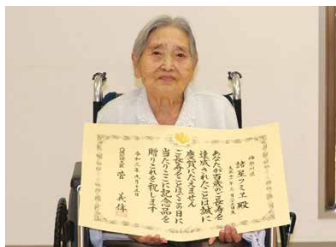 神奈川県
殿
あなたが百歳のご長寿を
達成されたことは誠に
慶賀にたえません
ご長寿をことほぐ日に
当たりここに記念品を
贈りこれを祝します
内閣総理大臣 菅 義偉